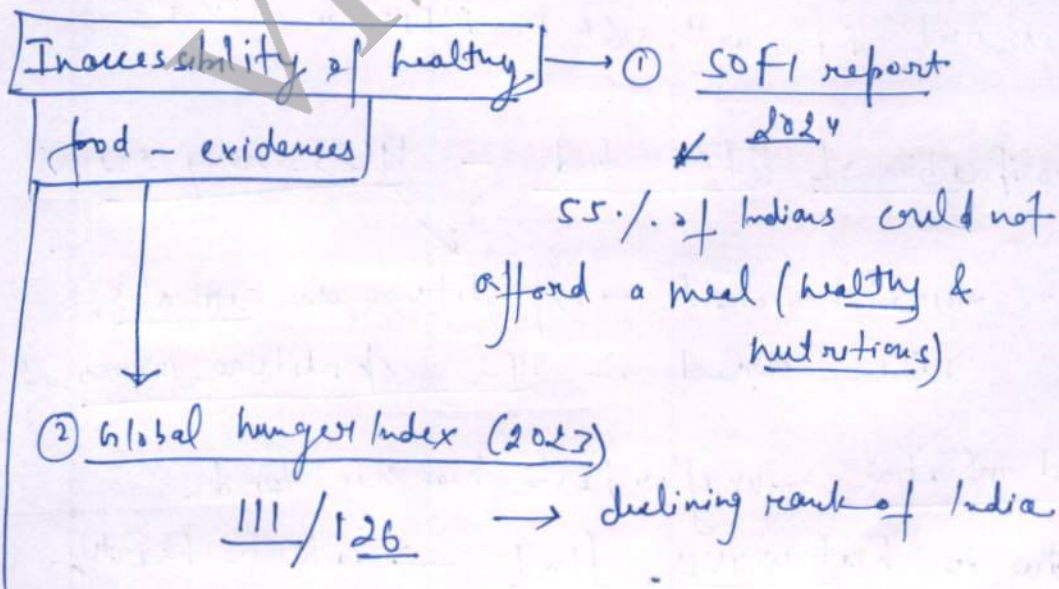 Inaccessibility of healthy → ① SOFI report
food - evidences
2024
55% of Indians could not
afford a meal (healthy &
nutritious)
② Global hunger Index (2023)
111/126 → declining rank of India